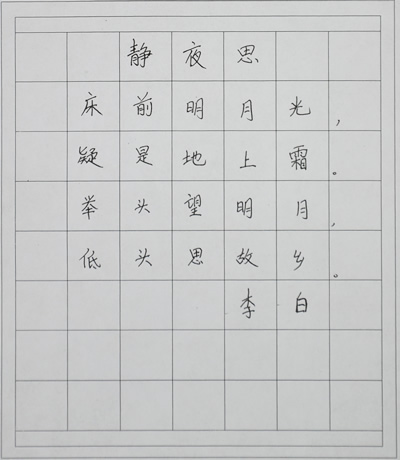 静夜思
床前明月光，
疑是地上霜。
举头望明月，
低头思故乡。
李白